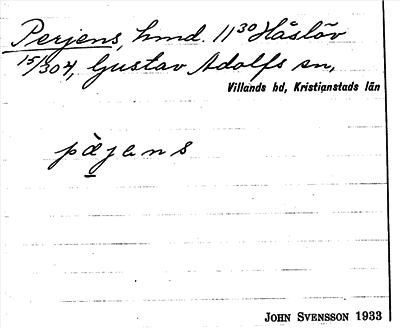 Perjens, hmd. 11³⁰ Håslöv
15/1304, Gustav Adolfs sn,
Villands hd, Kristianstads län
päjens
JOHN SVENSSON 1933